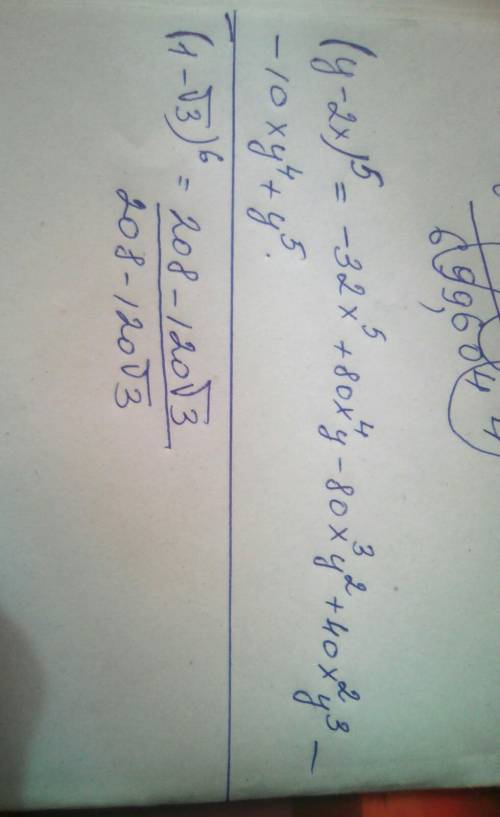 (y-2x)⁵ = -32x⁵ + 80x⁴y - 80x³y² + 40x²y³ -
- 10xy⁴ + y⁵.
(1-√3)⁶ = 208 - 120√3
208 - 120√3